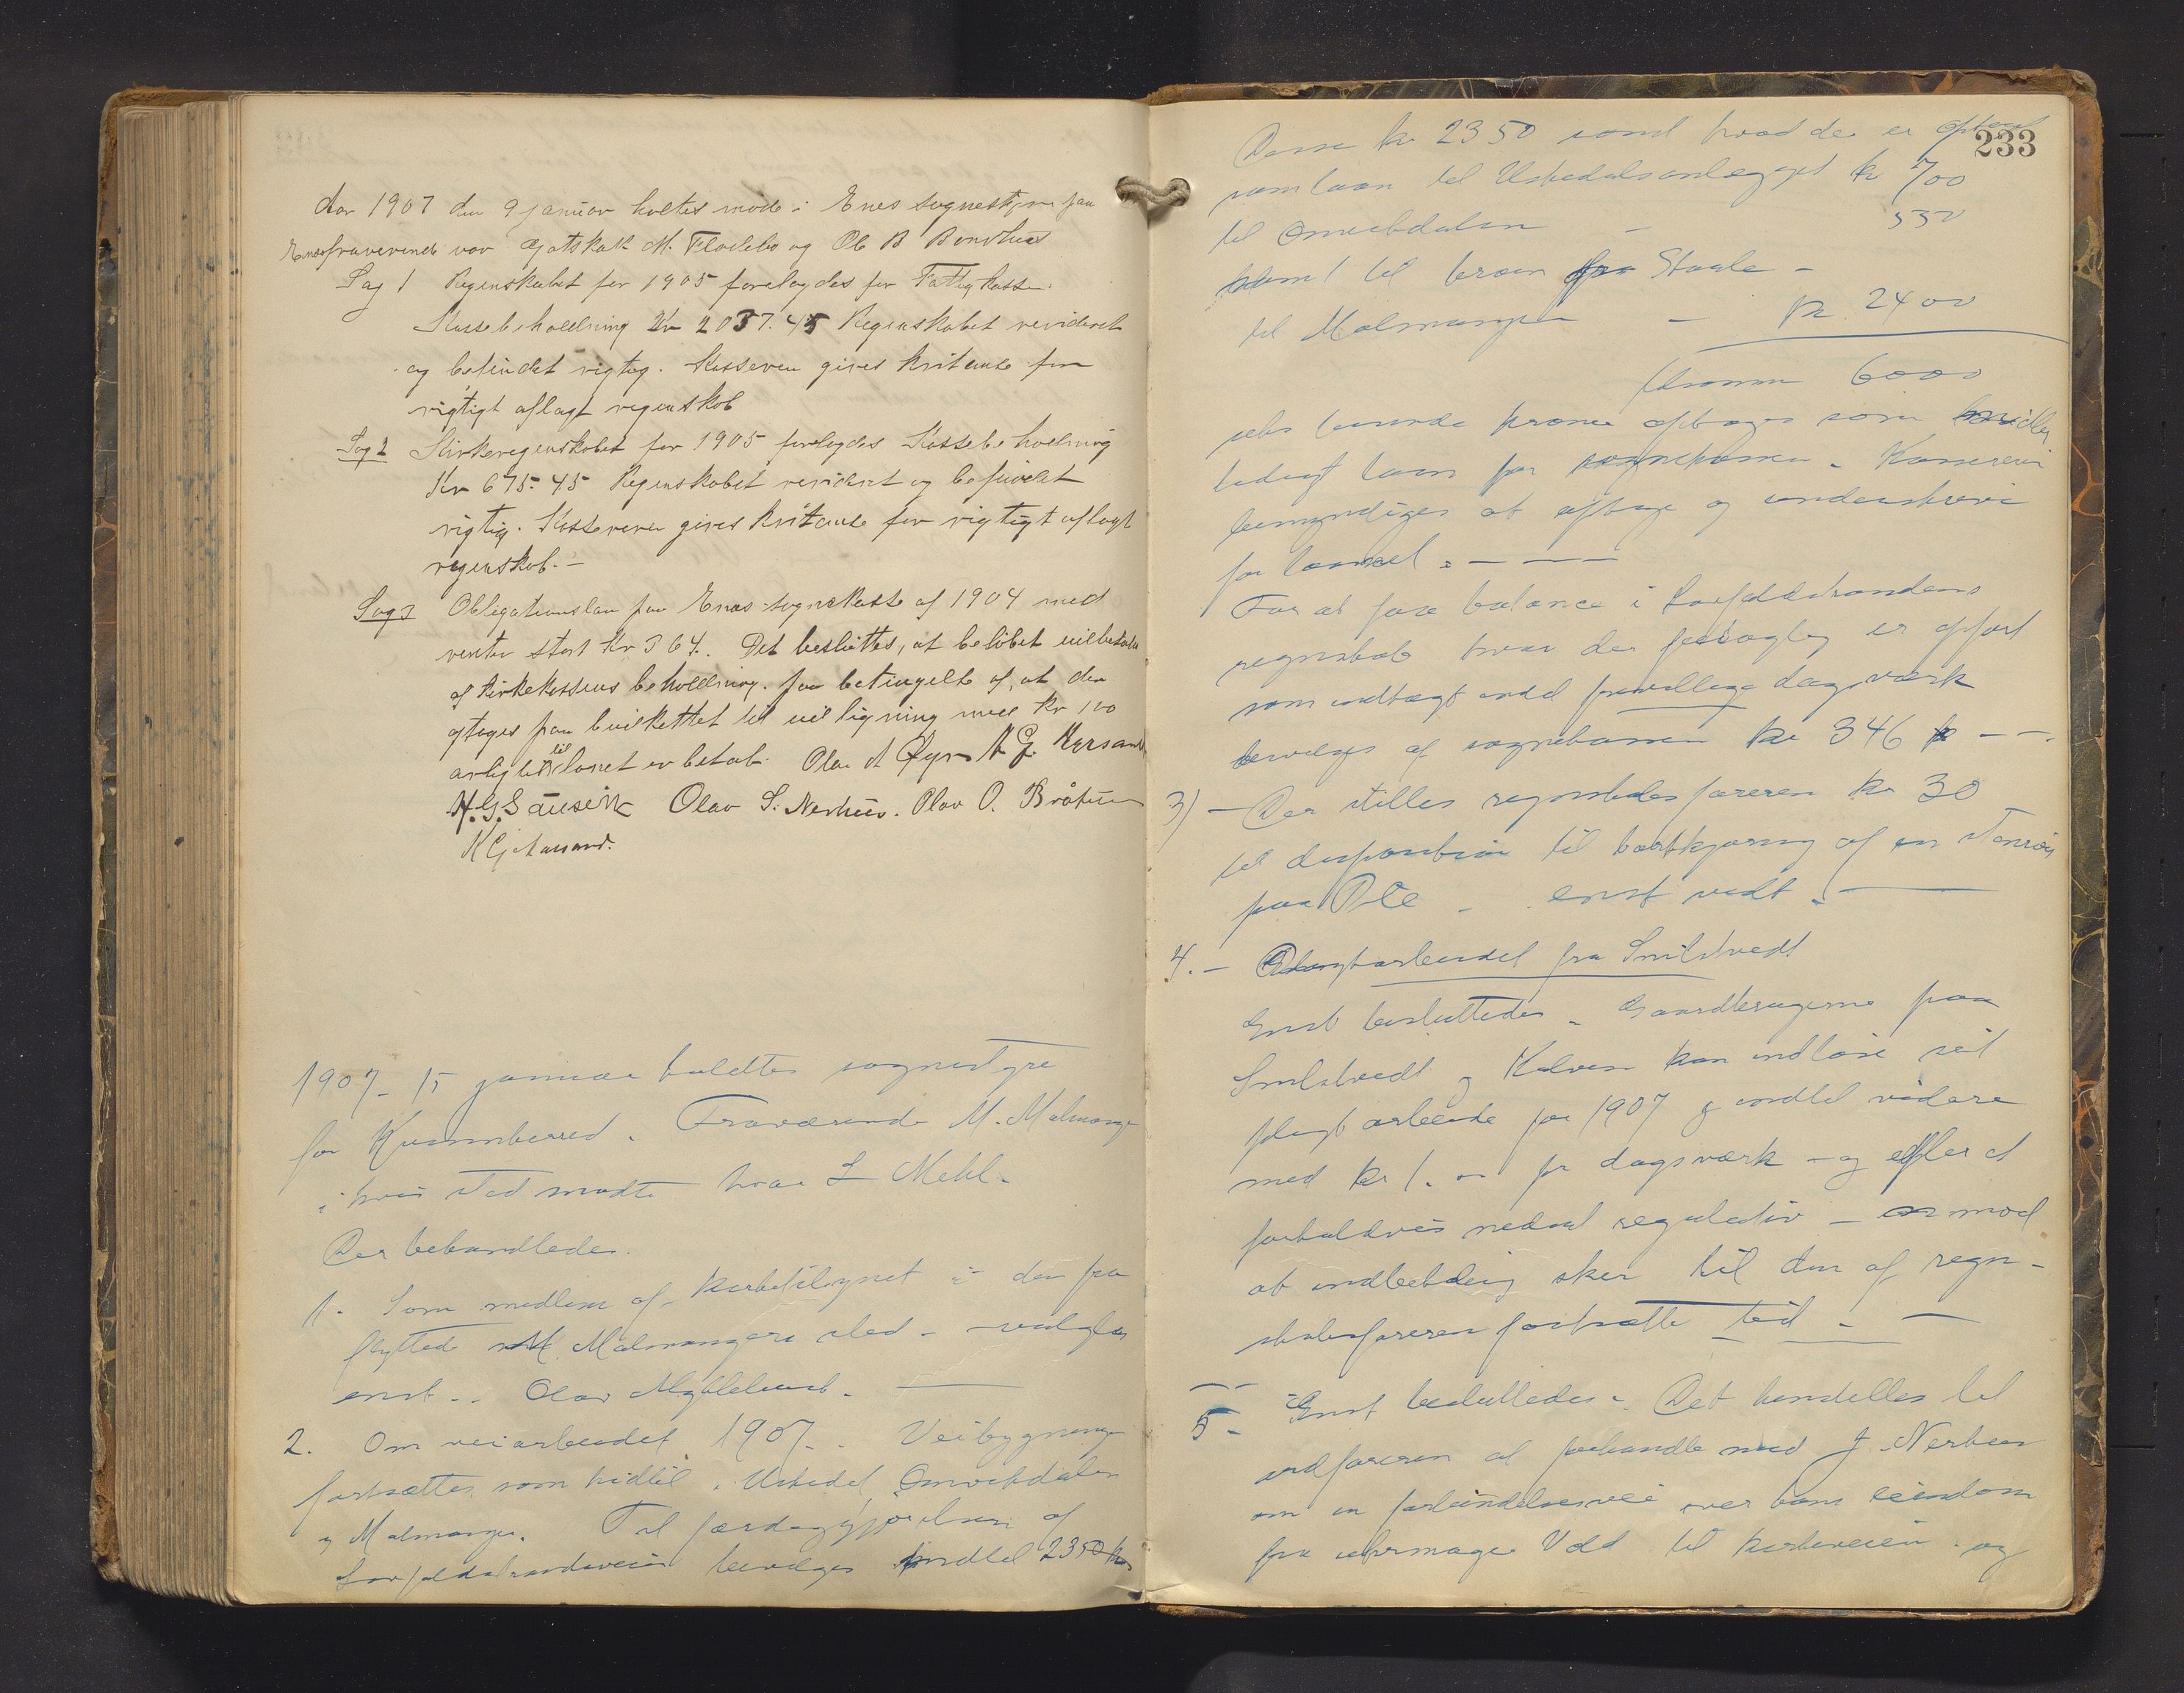 Aar 1907 den 9 januar holtes møde i Enes sognestyre paa
Enes fraverende var Gotskalk M. Flatebø og Ole B Bondhus
Sag 1 Regenskabet for 1905 forelagdes for Fattigkassen.
Kassebeholdning Kr 2037.45 Regenskabet revideret
og befindet rigtig. Kasseren gives kvitanse for
rigtigt aflagt regenskob
Sag 2 Kirkeregenskobet for 1905 forelagdes Kassebeholdning
Kr 675.45 Regenskobet revideret og befindet
rigtig. Kassereren gives kvitanse for rigtigt aflagt
regenskob.—
Sag 3 Obligationslaan fra Enes sognekasse af 1904 med
renter stort Kr 364. Det besluttes, at beløbet
af kirkekassens beholdning. paa betingelse af, at der
optages paa til med kr 100
arlig til lanet er betalt. Olav A Øyre
Olav S. Nerhus. Olav O. Bråtun
1907 - 15 januar holdtes sognestyre
for Kvinnherred. Fraværende M. Malmanger
i hvis sted mødte Ivar L Mehl.
Der behandledes.
1. - Som medlem af kirketilsynet i den fra
flyttede M. Malmangers sted - valgtes
enst. - Olav Myklebust. —
2. Om veiarbeidet 1907. - Veibygninger
fortsættes som hidtil. Uskedal, Omvikdalen
og Malmanger. Til færdiggjørelsen af
bevilges indtil 2350 kr
233
Disse kr 2350 samt hvad der er optaget
som laan til Uskedalsanlægget kr 700
til Omvikdalen - 550
samt til broen fra Staale -
til Malmanger - kr 2400
Kroner 6000
seks tusinde kroner optages som midler
tidigt laan for sognekassen. Kassereren
bemyndiges at optage og underskrive
for laanet. - — — —
For at faa balance i
regnskab hvor der er opført
som indtægt endel frivillige dagsværk
bevilges af sognekassen kr 346 - —.
3) - Der stilles regnskabsføreren kr 30
til disposition til bortkjøring af en
paa - enst vedt. —
4. - Pligtarbeidet fra Snilstveit
Enst besluttedes - Gaardbrugerne paa
Snilstveit og Kalven kan indløse sit
pligtarbeide for 1907 og indtil videre
med kr 1. - pr dagsværk - og efter et
forholdsvis nedsat regulativ - mod
at indbetaling sker til den af regn-
skabsføreren fortsatte tid. - —
5 - Enst besluttedes. Det henstilles til
ordføreren at forhandle med J. Nerhus
om en forbindelsesvei over hans eiendom
fra Vold til kirkeveien. og